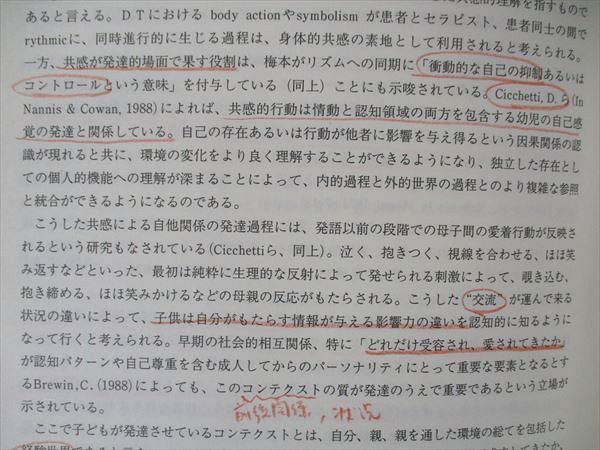 あると言える。DTにおける body actionやsymbolism が患者とセラピスト、患者同士の間で
rythmicに、同時進行的に生じる過程は、身体的共感の素地として利用されると考えられる。
一方、共感が発達的場面で果す役割は、梅本がリズムへの同期に「衝動的な自己の抑制あるいは
コントロールという意味」を付与している（同上）ことにも示唆されている。Cicchetti, D. ら (In
Nannis & Cowan, 1988) によれば、共感的行動は情動と認知領域の両方を包含する幼児の自己感
覚の発達と関係している。自己の存在あるいは行動が他者に影響を与え得るという因果関係の認
識が現れると共に、環境の変化をより良く理解することができるようになり、独立した存在とし
ての個人的機能への理解が深まることによって、内的過程と外的世界の過程とのより複雑な参照
と統合ができるようになるのである。
こうした共感による自他関係の発達過程には、発語以前の段階での母子間の愛着行動が反映さ
れるという研究もなされている(Cicchettiら、同上)。泣く、抱きつく、視線を合わせる、ほほ笑
み返すなどといった、最初は純粋に生理的な反射によって発せられる刺激によって、覗き込む、
抱き締める、ほほ笑みかけるなどの母親の反応がもたらされる。こうした“交流”が運んで来る
状況の違いによって、子供は自分がもたらす情報が与える影響力の違いを認知的に知るように
なって行くと考えられる。早期の社会的相互関係、特に「どれだけ受容され、愛されてきたか」
が認知パターンや自己尊重を含む成人してからのパーソナリティにとって重要な要素となるとす
るBrewin, C. (1988) によっても、このコンテクストの質が発達のうえで重要であるという立場が
示されている。
前後関係，状況
ここで子どもが発達させているコンテクストとは、自分、親、親を通した環境の総てを包括した